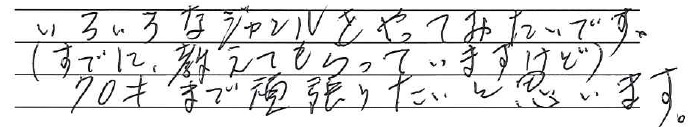 いろいろなジャンルをやってみたいです。
(すでに、教えてもらっていますけど)
70才まで頑張りたいと思います。